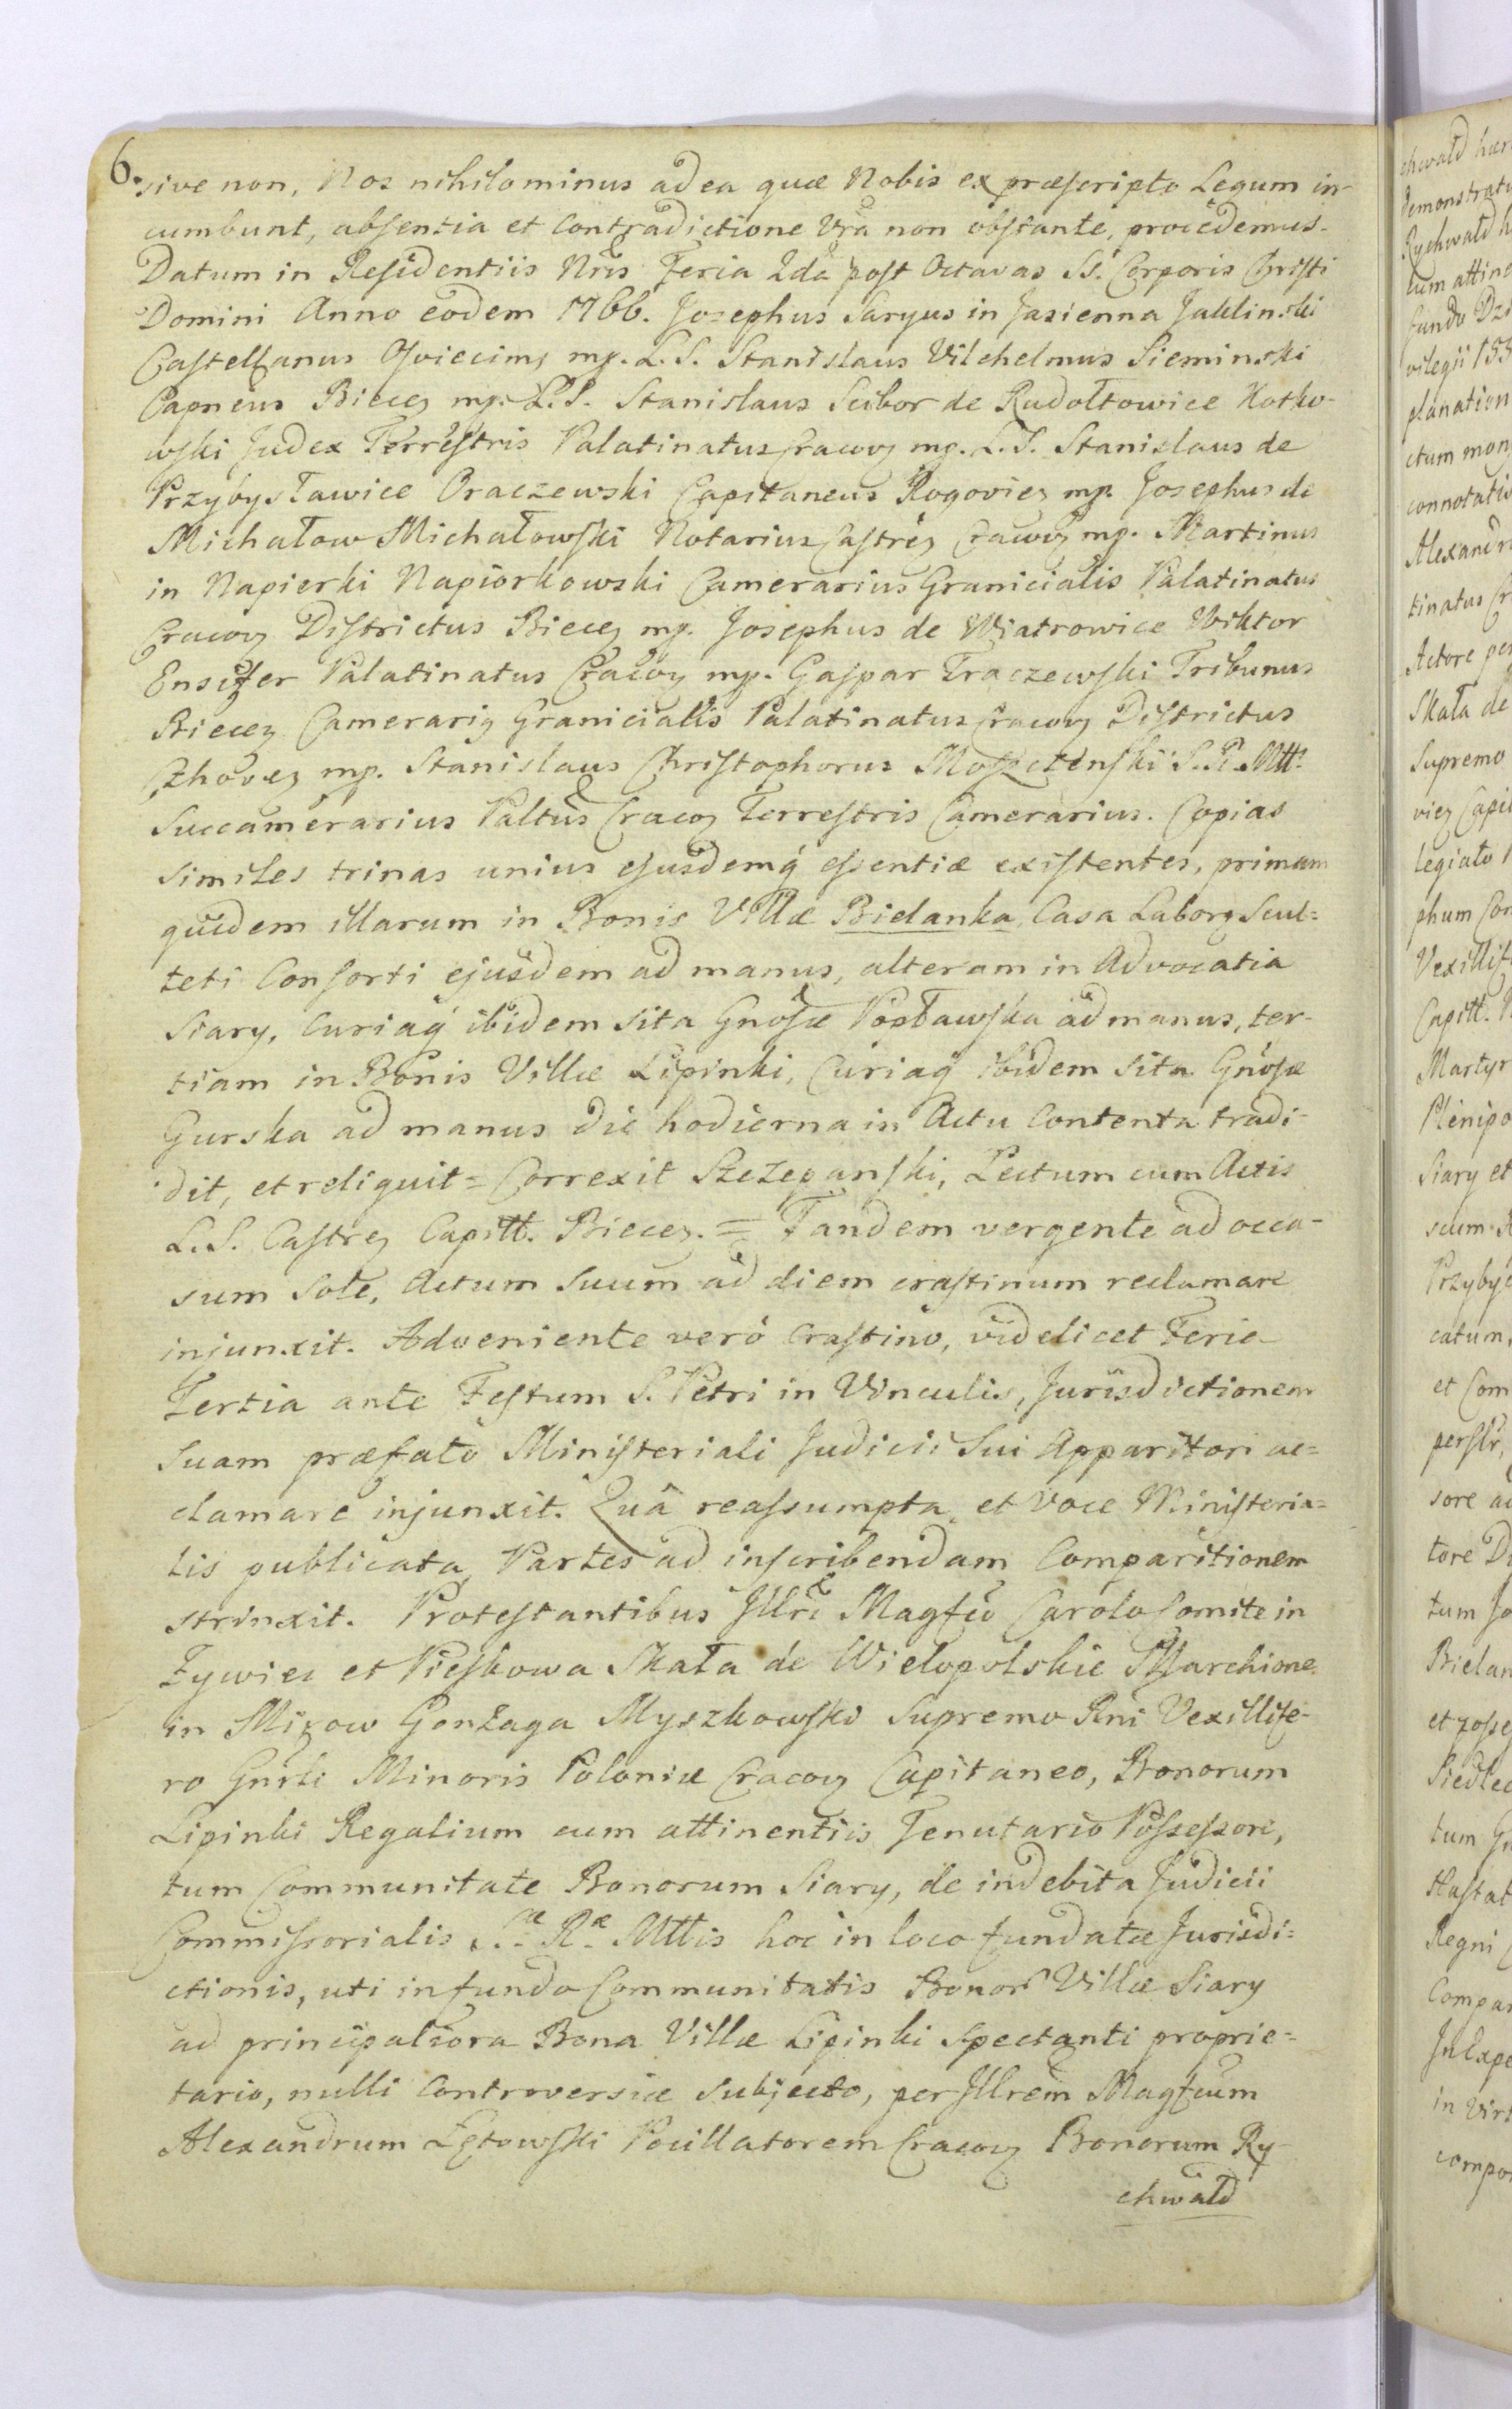 6.
sive non, Nos nihilominus ad ea quæ Nobis ex præscripto Legum in-
cumbunt, absentia et Contradictione Vra non obstante, procedemus.
Datum in Residentiis Nris Feria 2da post Octavas SS. Corporis Christi
Domini Anno eodem 1766. Josephus Saryus in Jasienna Jaklinski
Castellanus Osviecims mp. L.S. Stanislaus Vilchelmus Sieminski
Capneus Biecez mp. L.S. Stanislaus Scibor de Rudołtowice Kotko-
wski Judex Terrestris Palatinatus Cracov mp. L.S. Stanislaus de
Przybysławice Oraczewski Capitaneus Rogoviez mp. Josephus de
Michałow Michałowski Notarius Castrez Cracov mp. Martinus
in Napierki Napiorkowski Camerarius Granicialis Palatinatus
Cracov Districtus Biecez mp. Josephus de Wiatrowice Wiktor
Ensifer Palatinatus Cracov mp. Gaspar Traczewski Tribunus
Biecez Camerariq Granicialis Palatinatus Cracov Districtus
Czhovez mp. Stanislaus Christophorus Moszczenski S. R. Mtt.
Succamerarius Paltus Cracov Terrestris Camerarius. Copias
similes trinas unius ejusdemq́ essentiæ existentes, primam
quidem illarum in Bonis Villæ Bielanka Casa Laborz Scul=
teti Consorti ejusdem ad manus, alteram in Advocatia
Siary, Curiaq́ ibidem sita Gnosæ Popławska ad manus, ter-
tiam in Bonis Villæ Lipinki, Curiaq́ ibidem sita Gnosæ
Gurska ad manus die hodierna in Actu Contenta tradi-
dit, et reliquit = Correxit Szczepanski, Lectum cum Actis
L.S. Castrez Capitt. Biecez. = Tandem vergente ad occa-
sum Sole, Actum Suum ad diem crastinum reclamare
injunxit. Adveniente veró Crastino, videlicet Feria
Tertia ante Festum S. Petri in Vinculis, Jurisdictionem
Suam præfato Ministeriali Judicii Sui Apparitori ac=
clamare injunxit. Quâ reassumpta et Voce Ministeria=
lis publicata, Partes ad inscribendam Comparitionem
strinxit. Protestantibus Jllri Magfco Carolo Comite in
Zywiec et Pieskowa Skała de Wielopolskie Marchione
in Mirow Gonzaga Myszkowski Supremo Rni Vexillife-
ro Gnrli Minoris Poloniæ Cracov Capitaneo, Bonorum
Lipinki Regalium cum attinentiis Tenutario Possessore,
tum Communitate Bonorum Siary, de indebita Judicii
Commissorialis S.æ R.æ Mttis hoc in loco fundatæ Jurisdi=
ctionis, uti in fundo Communitatis Bonor Villæ Siary
ad principaliora Bona Villæ Lipinki Spectanti proprie=
tario, nulli Controversiæ subjecto, per Jllrem Magfcum
Alexandrum Łętowski Pocillatorem Cracov Bonorum Ry-
chwałd